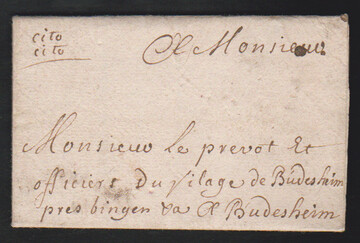 cito
cito
A Monsieur
Monsieur Le prevot Et
officiers Du vilage de Büdesheim
pres bingen va A Budesheim